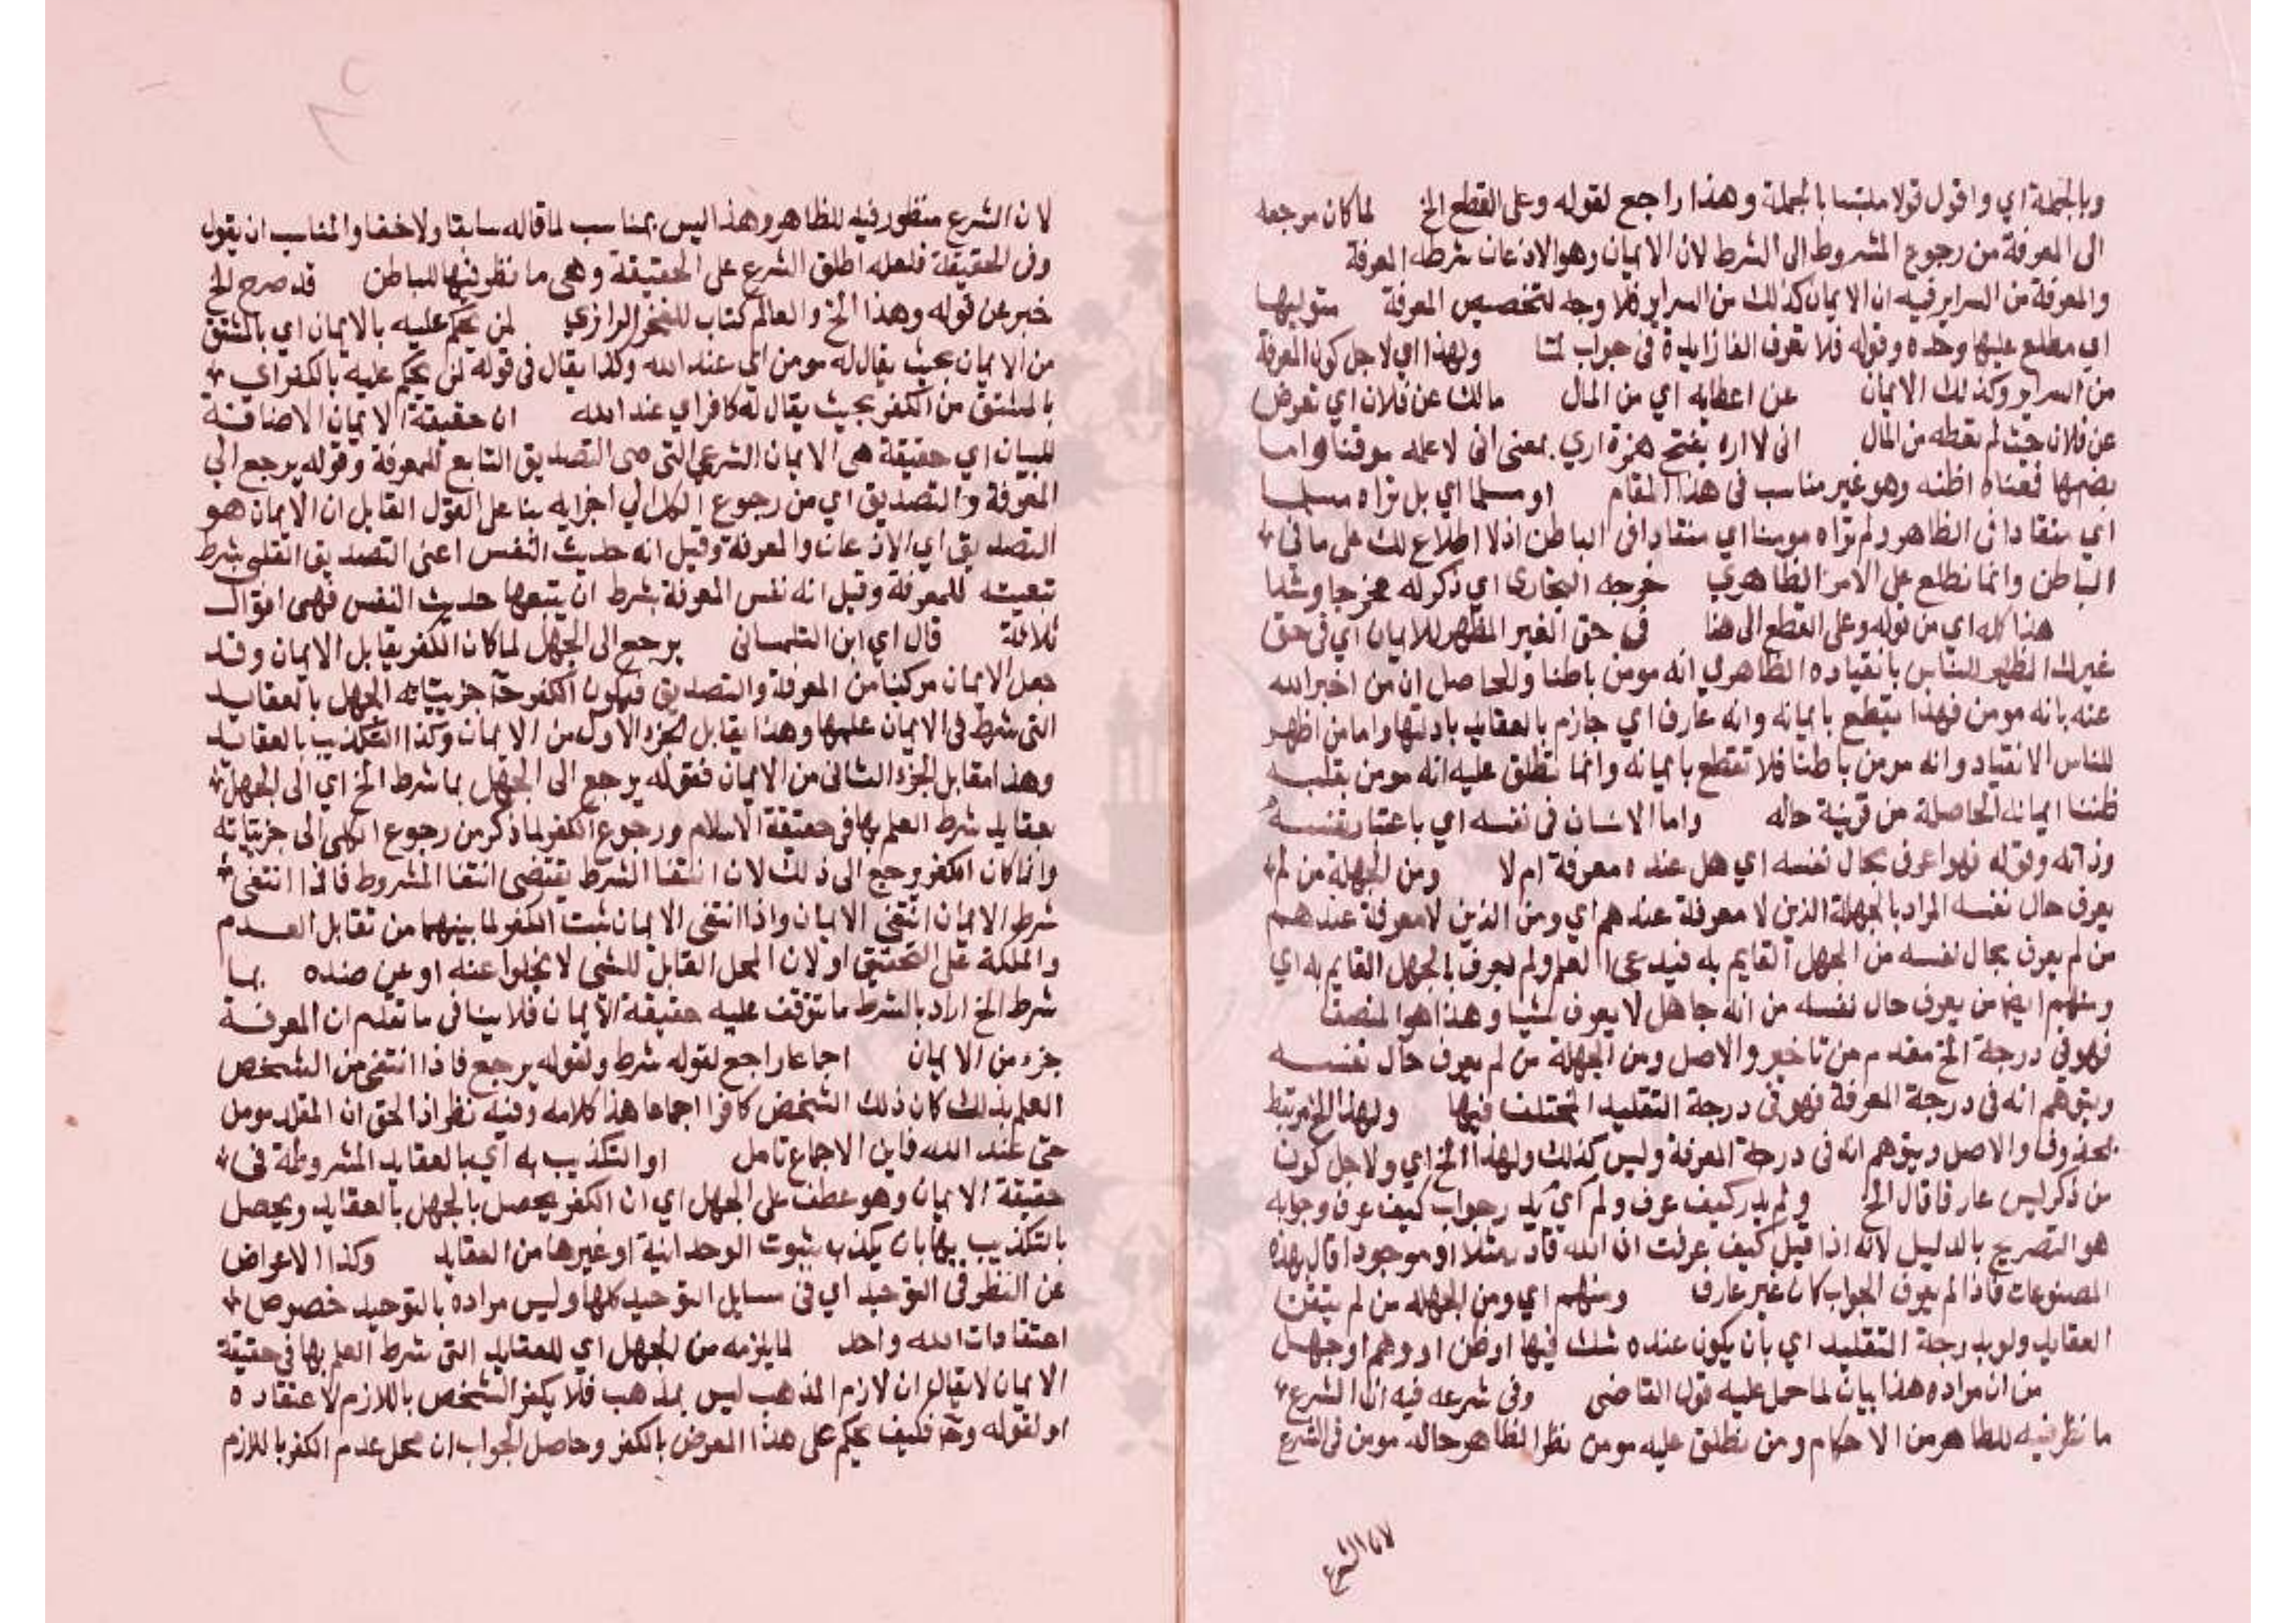 وبالجملة اي واقول قولا ملتبسا بالجملة وهذا راجع لقوله وعلى القطع الخ لما كان مرجعه
الى المعرفة من رجوع المشروط الى الشرط لان الايمان وهو الاذعان شرطه المعرفة
والمعرفة من السراير فيه ان الايمان كذلك من السراير فلا وجه لتخصيص المعرفة متوليها
اي مطلع عليها وحده وقوله فلا تعرف الفا زايدة في جواب لما ولهذا اي لاجل كون المعرفة
من السراير وكذلك الايمان عن اعطايه اي من المال مالك عن فلان اي تعرض
عن فلان حيث لم تعطه من المال اني لا اره بفتح همزة اري بمعنى اني لا علمه موقنا واما
بضمها فمعناه اظنه وهو غير مناسب في هذا المقام او مسلما اي بل تراه مسلما
اي منقادا في الظاهر ولم تراه مومنا اي منقادا في الباطن اذ لا اطلاع لك على ما في
الباطن وانما نطلع على الامر الظاهري خرجه البخاري اي ذكر له مخرجا وسندا
هذا كله اي من قوله وعلى القطع الى هنا في حق الغير المظهر للايمان اي في حق
غيرك المظهر للناس بانقياده الظاهري انه مومن باطنا والحاصل ان من اخبر الله
عنه بانه مومن فهذا يقطع بايمانه وانه عارف اي جازم بالعقايد بادلتها واما من اظهر
للناس الانقياد وانه مومن باطنا فلا تقطع بايمانه وانما نطلق عليه انه مومن بقلبه
ظننا ايمانه الحاصلة من قرينة حاله واما الانسان في نفسه اي باعتبار نفسه
وذاته وقوله فهو اعرف بحال نفسه اي هل عنده معرفة ام لا ومن الجهلة من لم
يعرف حال نفسه المراد بالجهلة الذين لا معرفة عندهم اي ومن الذين لا معرفة عندهم
من لم يعرف بحال نفسه من الجهل القايم به فيدعي العلم ولم يعرف بالجهل القايم به اي
ومنهم ايضا من يعرف حال نفسه من انه جاهل لا يعرف شيا وهذا هو المنصف
فهو في درجة الخ مقدم من تاخير والاصل ومن الجهلة من لم يعرف حال نفسه
ويتوهم انه في درجة المعرفة فهو في درجة التقليد المختلف فيها ولهذا الخ مرتبط
بمحذوف والاصل ويتوهم انه في درجة المعرفة وليس كذلك ولهذا الخ اي ولاجل كون
من ذكر ليس عارفا قال الخ ولم يدر كيف عرف ولم اي يدر جواب كيف عرف وجوابه
هو التصريح بالدليل لانه اذا قيل كيف عرفت ان الله قادر مثلا او موجودا قال بهذه
المصنوعات فاذا لم يعرف الجواب كان غير عارف ومنهم اي ومن الجهلة من لم يتقن
العقايد ولو بدرجة التقليد اي بان يكون عنده شك فيها او ظن او وهم او جهل
من ان مراده هذا بيان لما حمل عليه قول القاضي وفي شرعه فيه ان الشرع
ما نظر فيه للظاهر من الاحكام ومن نطلق عليه مومن نظرا لظاهر حاله مومن في الشرع
لان الشرع
لان الشرع منظور فيه للظاهر وهذا ليس بمناسب لما قاله سابقا ولا خفا والمناسب ان يقول
وفي الحقيقة فلعله اطلق الشرع على الحقيقة وهي ما نظر فيها للباطن قد صرح الخ
خبر عن قوله وهذا الخ والعالم كتاب للفخر الرازي لمن يحكم عليه بالايمان اي بالمشتق
من الايمان بحيث يقال له مومن اي عند الله وكذا يقال في قوله لمن يحكم عليه بالكفر اي
بالمشتق من الكفر بحيث يقال له كافر اي عند الله ان حقيقة الايمان الاضافة
للبيان اي حقيقة هي الايمان الشرعي التي هي التصديق التابع للمعرفة وقوله يرجع الى
المعرفة والتصديق اي من رجوع الكل الي اجزايه بنا على القول القايل ان الايمان هو
التصديق اي الاذعان والمعرفة وقيل انه حديث النفس اعني التصديق القلبي بشرط
تبعيته للمعرفة وقيل انه نفس المعرفة بشرط ان يتبعها حديث النفس فهي اقوال
ثلاثة قال اي ابن التلمساني يرجع الى الجهل لما كان الكفر يقابل الايمان وقد
جعل الايمان مركبا من المعرفة والتصديق فيكون الكفر ح جزيياته الجهل بالعقايد
التي شرط في الايمان علمها وهذا يقابل الجزء الاول من الايمان وكذا التكذيب بالعقايد
وهذا مقابل الجزء الثاني من الايمان فقوله يرجع الى الجهل بما شرط الخ اي الى الجهل
بعقايد شرط العلم بها في حقيقة الاسلام ورجوع الكفر لما ذكر من رجوع الكلي الى جزيياته
وانما كان الكفر يرجع الى ذلك لان انتفا الشرط يقتضي انتفا المشروط فاذا انتفى
شرط الايمان انتفى الايمان واذا انتفى الايمان ثبت الكفر لما بينهما من تقابل العدم
والملكة على التحقيق او لان المحل القابل للشي لا يخلوا عنه او عن ضده بما
شرط الخ اراد بالشرط ما تتوقف عليه حقيقة الايمان فلا ينافي ما تقدم ان المعرفة
جزء من الايمان اجماعا راجع لقوله شرط ولقوله يرجع فاذا انتفى من الشخص
العلم بذلك كان ذلك الشخص كافرا اجماعا هذا كلامه وفيه نظر اذ الحق ان المقلد مومن
حتى عند الله فاين الاجماع تامل او التكذيب به اي بالعقايد المشروطة في
حقيقة الايمان وهو عطف على الجهل اي ان الكفر يحصل بالجهل بالعقايد ويحصل
بالتكذيب بها بان يكذب بثبوت الوحدانية او غيرها من العقايد وكذا الاعراض
عن النظر في التوحيد اي في مسايل التوحيد كلها وليس مراده بالتوحيد خصوص
اعتقادات الله واحد لما يلزمه من الجهل اي للعقايد التي شرط العلم بها في حقيقة
الايمان لا يقال ان لازم المذهب ليس بمذهب فلا يكفر الشخص باللازم لاعتقاده
او لقوله وح فكيف يحكم على هذا المعرض بالكفر وحاصل الجواب ان محل عدم الكفر باللازم